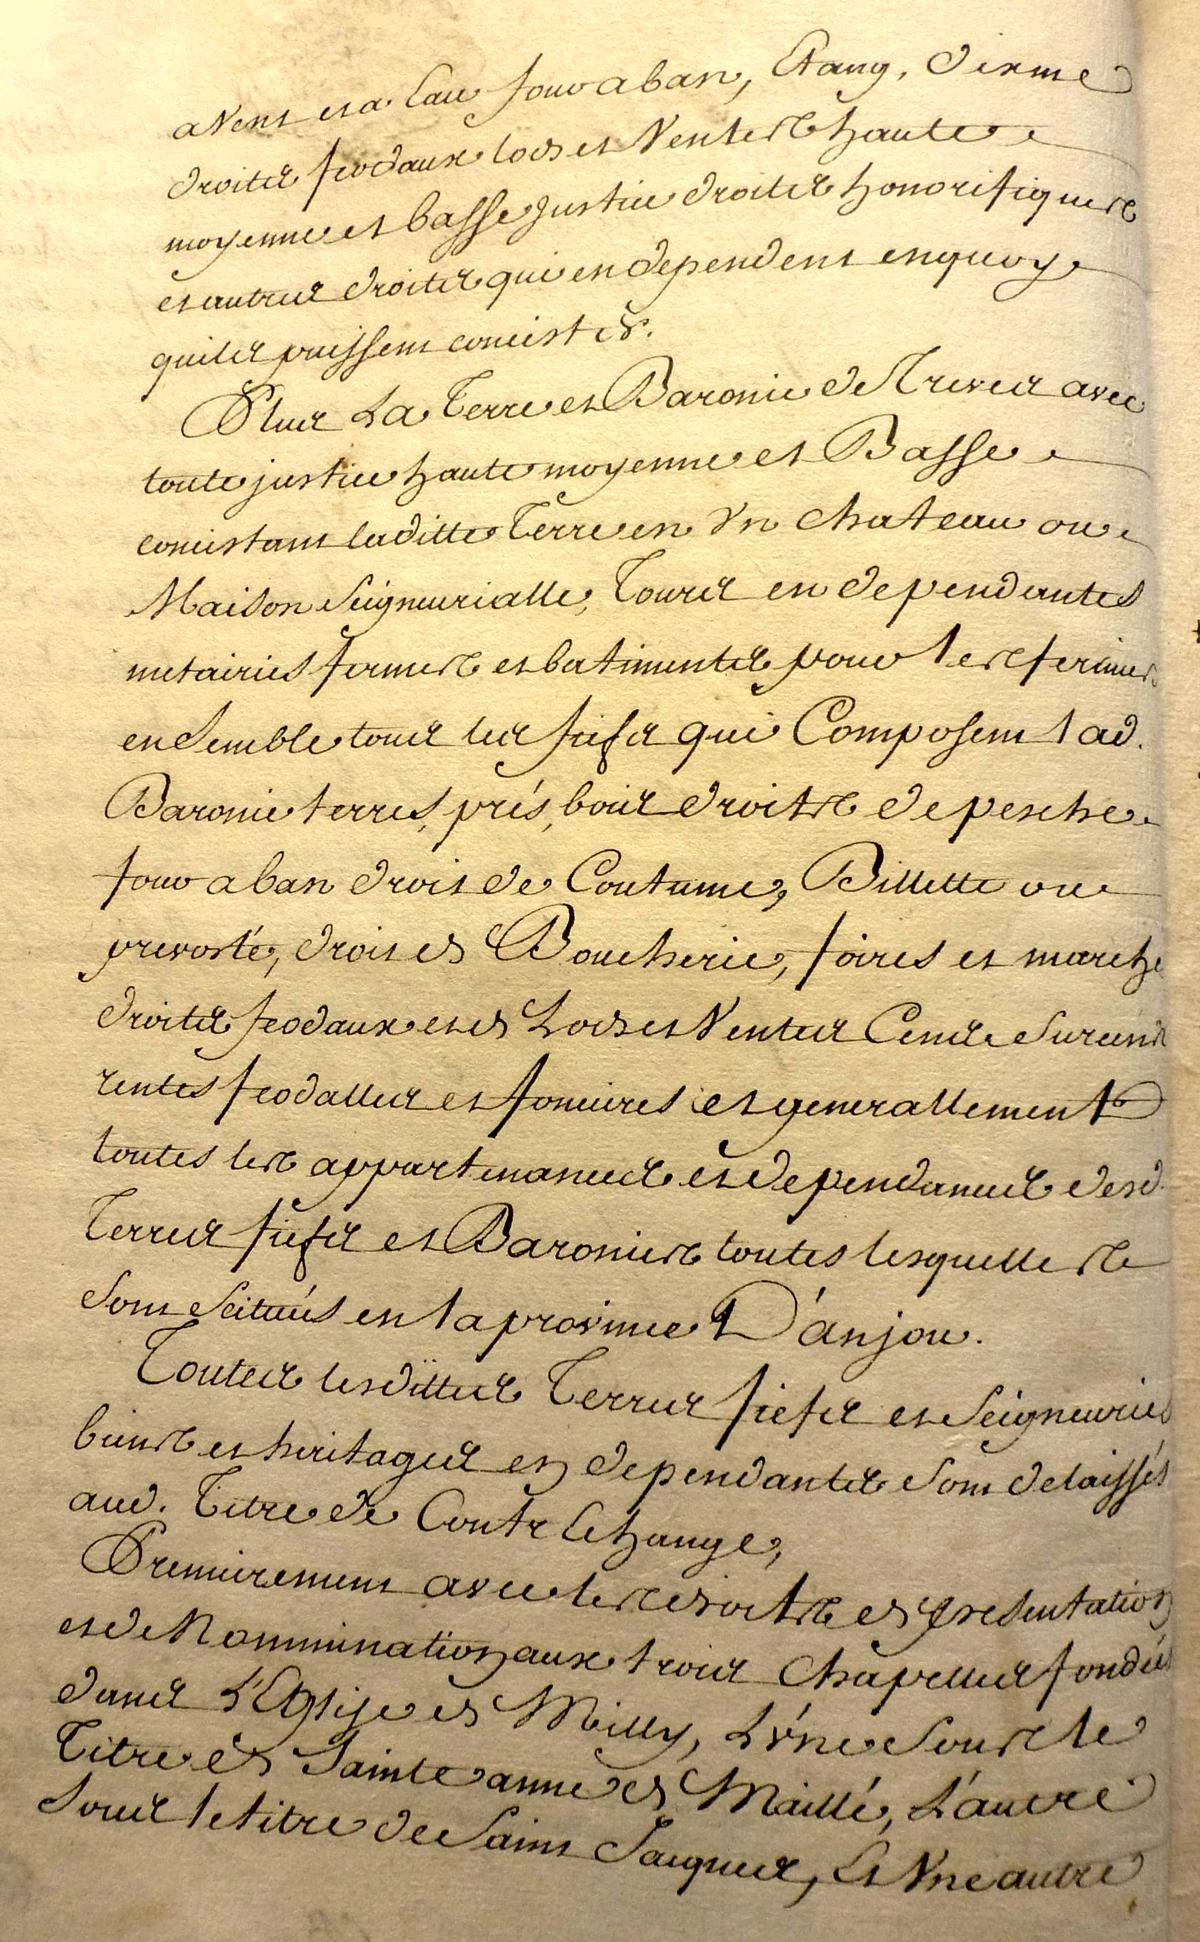 a Vent et a Eau four a ban, Etang, dixme
droits feodaux lods et Ventes haute
moyenne et basse justice droits honorifiques
et autres droits qui en dependent en quoy
quils puissent concister.
Plus La Terre et Baronie de Treves avec
toute justice haute moyenne et Basse
concistant laditte Terre en Vn chateau ou
Maison Seigneurialle, Cours en dependantes
metairies fermes et batiments pour les fermiers
ensemble tous les fiefs qui Composent lad.
Baronie terres, prés, bois droits de pesche
four a ban droit de Coutume, Billette ou
prevosté, droit de Boucherie, foires et marché
droits feodaux et de Lods et Ventes Cens Surcens
rentes feodalles et foncieres et generallement
toutes les appartenances et dependances desd.
Terres fiefs et Baronies toutes lesquelles
sont scitués en la province D'anjou.
Toutes lesdittes Terres fiefs et Seigneuries
biens et heritages en dependantes sont delaissés
aud. Titre de Contr Echange,
Premierement avec les droits de presentation
et de Nommination aux trois Chapelles fondées
dans L'Eglise de Milly, L'vne sous le
Titre de Sainte anne de Maillé, L'autre
sous le titre de Saint Jacques, Et Vne autre